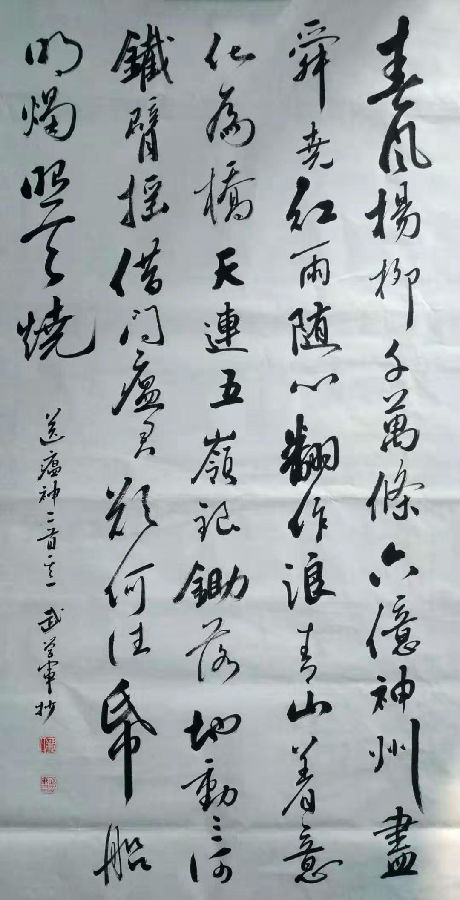 春风楊柳千萬條六億神州盡
舜尭红雨随心翻作浪青山着意
化為橋天連五嶺銀鋤落地動三河
鐵臂摇借问瘟君欲何往帋船
明燭照天燒
送瘟神二首之一 武学軍抄